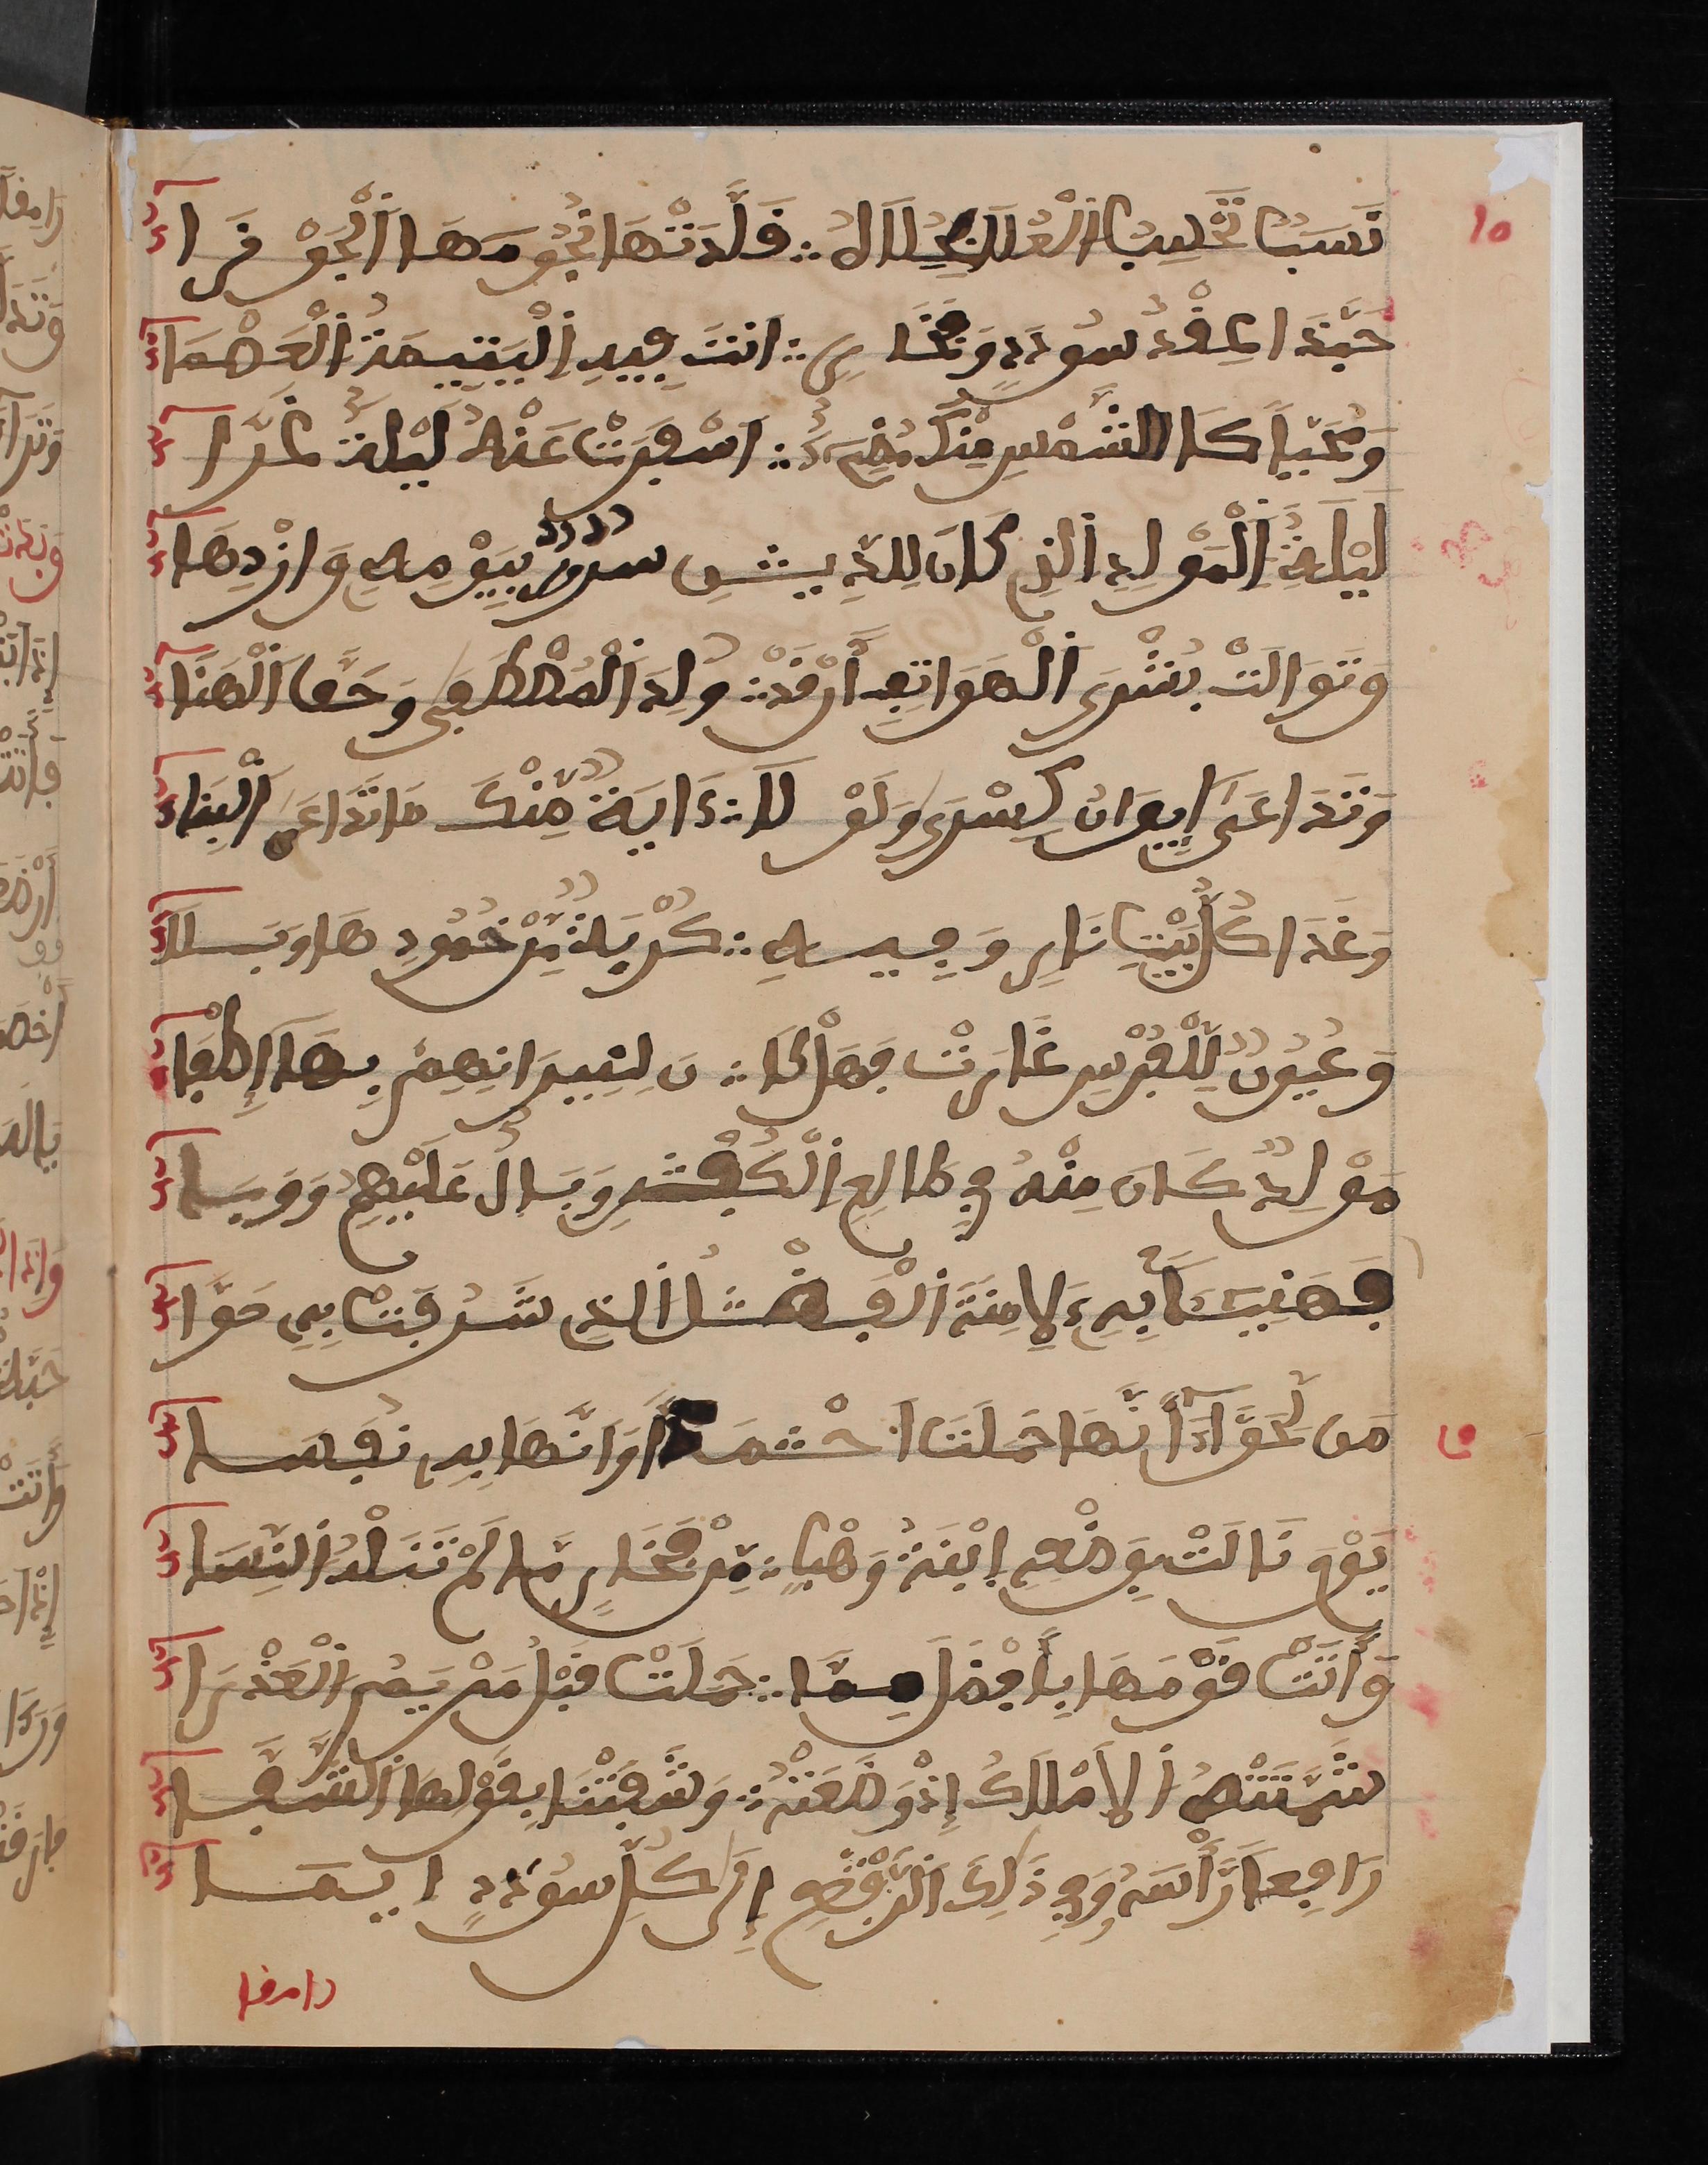 نَسَبٌ تَحْسِبُ الْعُلَا بِحُلَاهُ ∴ قَلَّدَتْهَا نُجُومَهَا الْجَوْزَا
حَبَّذَا عِقْدُ سُودَدٍ وَفَخَارٍ ∴ اَنتَ فِيهِ الْيَتِيمَةُ الْعَصْمَا
وَمُحَيًّا كَالشَّمْسِ مِنْكَ مُضِيءٌ ∴ اَسْفَرَتْ عَنْهُ لَيْلَةٌ غَرَّا
لَيْلَةُ الْمَوْلِدِ الَّذِي كَانَ لِلدِّينِ سُرُورٌ بِيَوْمِهِ وَازْدِهَا
وَتَوَالَتْ بُشْرَى الْهَوَاتِفِ أَن قَدْ ∴ وُلِدَ الْمُصْطَفَى وَحَقَّ الْهَنَا
وَتَدَاعَى اِيوَانُ كِسْرَى وَلَوْلَا ∴ ءَايَةٌ مِّنْكَ مَا تَدَاعَى الْبِنَاءُ
وَغَدَا كُلُّ بَيْتِ نَارٍ وَفِيهِ ∴ كُرْبَةٌ مِّنْ خُمُودِهَا وَبَلَا
وَعُيُونٌ لِّلْفُرْسِ غَارَتْ فَهَلْ كَا ∴ نَ لِنِيرَانِهِمْ بِهَا إِطْفَا
مَوْلِدٌ كَانَ مِنْهُ فِي طَالِعِ الْكُفْرِ وَبَالٌ عَلَيْهِمْ وَوَبَا
فَهَنِيئًا بِهِ لِامِنَةَ الْفَضْلُ الَّذِي شَرُفَتْ بِهِ حَوَّا
مَن لِّحَوَّاءَ أَنَّهَا حَمَلَتْ اَحْمَدَ أَوْ اَنَّهَا بِهِ نُفَسَا
يَوْمَ نَالَتْ بِوَضْعِهِ ابْنَةُ وَهْبٍ ∴ مِن فَخَارٍ مَّا لَمْ تَنَلْهُ النِّسَا
وَأَتَتْ قَوْمَهَا بِأَفْضَلَ مِمَّا ∴ حَمَلَتْ قَبْلُ مَرْيَمُ الْعَذْرَا
شَمَّتَتْهُ الامْلَاكُ إِذْ وَضَعَتْهُ ∴ وَشَفَتْنَا بِقَوْلِهَا الشَّفَّا
رَافِعًا رَّأْسَهُ وَفِي ذَلِكَ الرَّفْعِ إِلَى كُلِّ سُودَدٍ ايمَا
رامقا